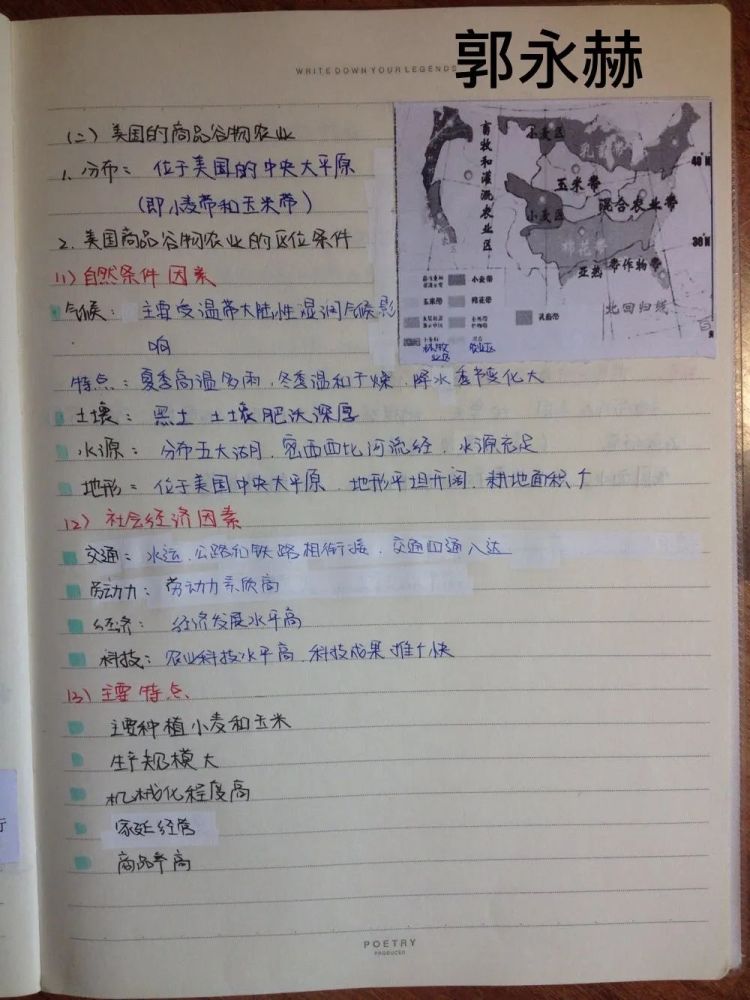 WRITE DOWN YOUR LEGENDS
郭永赫
(二) 美国的商品谷物农业
1. 分布: 位于美国的中央大平原
(即小麦带和玉米带)
2. 美国商品谷物农业的区位条件
(1) 自然条件因素
气候: 主要受温带大陆性湿润气候影
响
特点: 夏季高温多雨、冬季温和干燥、降水季节变化大
土壤: 黑土 土壤肥沃深厚
水源: 分布五大湖、密西西比河流经、水源充足
地形: 位于美国中央大平原 地形平坦开阔、耕地面积↑
(2) 社会经济因素
交通: 水运、公路和铁路相衔接、交通四通八达
劳动力: 劳动力素质高
经济: 经济发展水平高
科技: 农业科技水平高、科技成果推广快
(3) 主要特点
主要种植小麦和玉米
生产规模大
机械化程度高
家庭经营
商品率高
小麦区
乳畜带
畜牧和灌溉农业区
玉米带
小麦区
混合农业带
棉花带
亚热带作物带
北回归线
40°N
30°N
小麦带
玉米带
棉花带
乳畜带
POETRY
PRODUCED